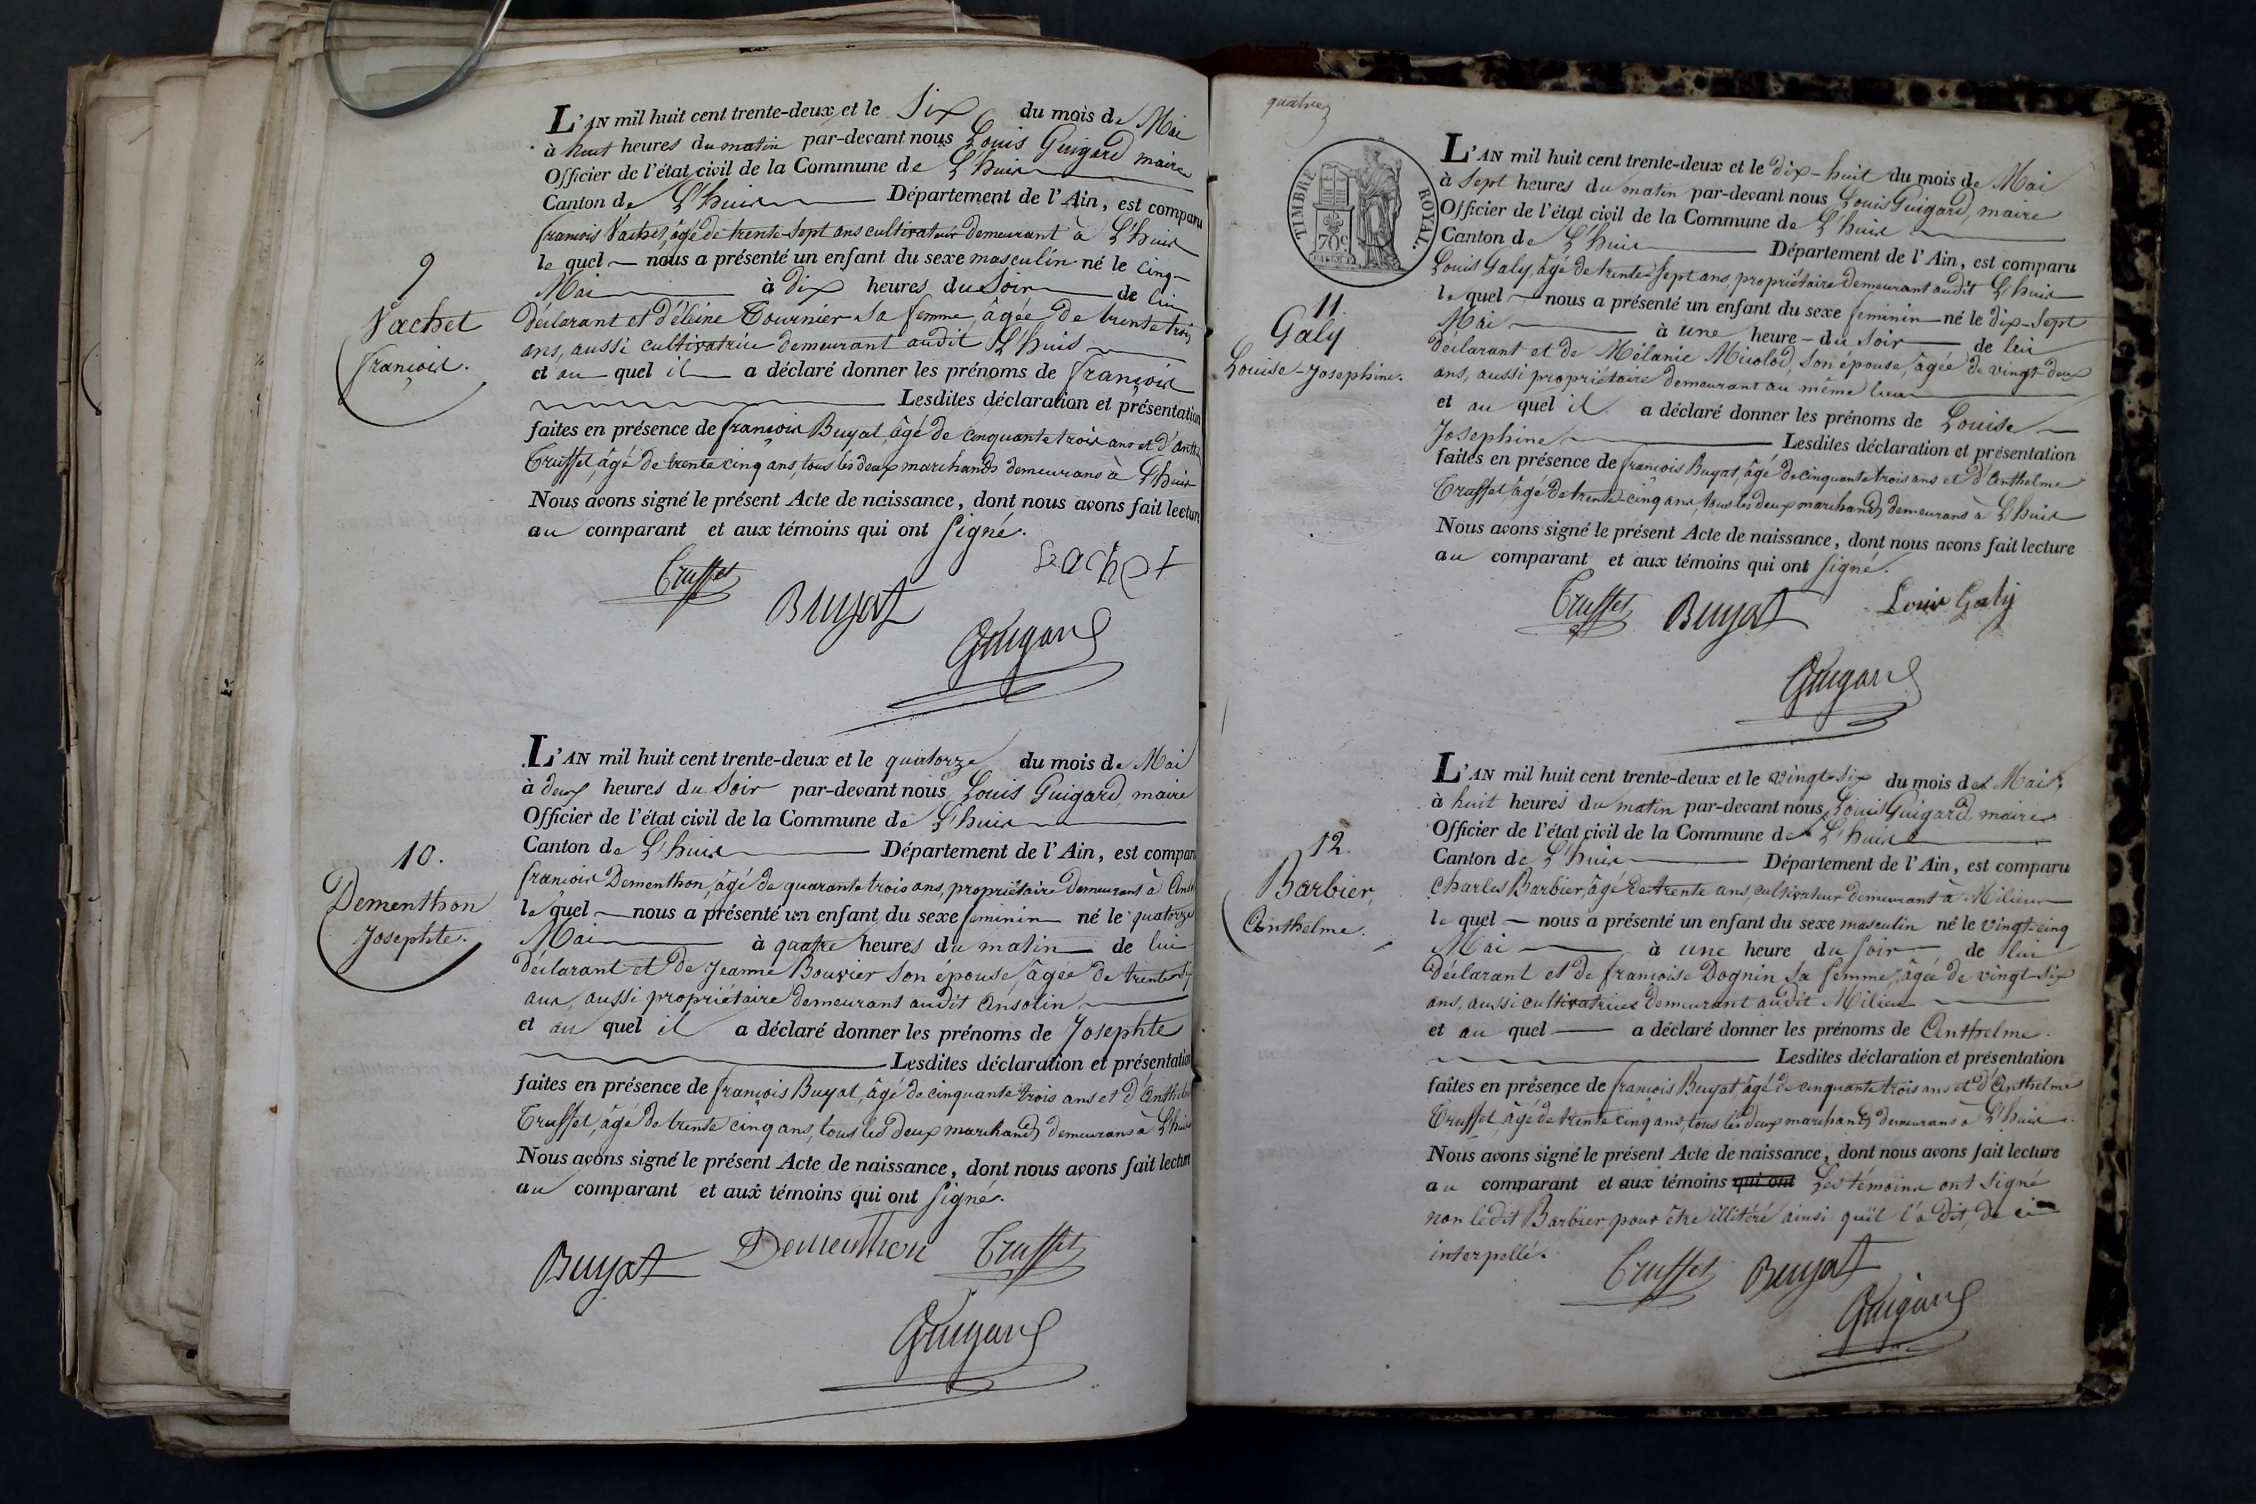 L'AN mil huit cent trente-deux et le Six du mois de Mai
à huit heures du matin par-devant nous Louis Guigard maire
Officier de l'état civil de la Commune de L'huis
Canton de L'huis Département de l'Ain, est comparu
françois Vachet, âgé de trente-sept ans cultivateur demeurant à L'huis
le quel nous a présenté un enfant du sexe masculin né le cinq
Mai à dix heures du Soir de lui
déclarant et d'éleine Tournier sa femme, âgée de trente trois
ans, aussi cultivatrice demeurant audit L'huis
et au quel il a déclaré donner les prénoms de françois
Lesdites déclaration et présentation
faites en présence de françois Buyat, âgé de cinquante trois ans et d'anth
Truffet, âgé de trente cinq ans, tous les deux marchands demeurans à L'huis
Nous avons signé le présent Acte de naissance, dont nous avons fait lecture
au comparant et aux témoins qui ont signé.
9
Vachet
françois.
Vachet
Truffet
Buyat
Guigard
L'AN mil huit cent trente-deux et le quatorze du mois de Mai
à deux heures du Soir par-devant nous Louis Guigard, maire
Officier de l'état civil de la Commune de L'huis
Canton de L'huis Département de l'Ain, est compar
françois Dementhon, âgé de quarante trois ans, propriétaire demeurant à Anso
le quel nous a présenté un enfant du sexe feminin né le quatorze
Mai à quatre heures du matin de lui
déclarant et de Jeanne Bouvier son épouse, âgée de trente-six
ans, aussi propriétaire demeurans audit Ansolin,
et au quel il a déclaré donner les prénoms de Josephte
Lesdites déclaration et présentation
faites en présence de françois Buyat, âgé de cinquante trois ans et d'Anthelm
Truffet, âgé de trente cinq ans, tous les deux marchands demeurans à L'huis
Nous avons signé le présent Acte de naissance, dont nous avons fait lecture
au comparant et aux témoins qui ont signé.
10.
Dementhon
Josephte.
Buyat Dementhon Truffet
Guigard
quatre
TIMBRE ROYAL.
70c
L'AN mil huit cent trente-deux et le dix-huit du mois de Mai
à Sept heures du matin par-devant nous Louis Guigard, maire
Officier de l'état civil de la Commune de L'huis
Canton de L'huis Département de l'Ain, est comparu
Louis Galy, âgé de trente-sept ans, propriétaire demeurant audit L'huis
le quel nous a présenté un enfant du sexe feminin né le dix-Sept
Mai à une heure du soir de lui
déclarant et de Mélanie Micolod, son épouse, âgée de vingt-deux
ans, aussi propriétaire demeurant au même lieu
et au quel il a déclaré donner les prénoms de Louise
Josephine Lesdites déclaration et présentation
faites en présence de françois Buyat, âgé de cinquante trois ans et d'Anthelme
Truffet, âgé de trente-cinq ans, tous les deux marchands demeurans à L'huis
Nous avons signé le présent Acte de naissance, dont nous avons fait lecture
au comparant et aux témoins qui ont signé.
11.
Galy
Louise-Josephine.
Truffet Buyat Louis Galy
Guigard
L'AN mil huit cent trente-deux et le vingt-six du mois de Mai
à huit heures du matin par-devant nous Louis Guigard, maire
Officier de l'état civil de la Commune de L'huis
Canton de L'huis Département de l'Ain, est comparu
Charles Barbier, âgé de trente ans, cultivateur demeurant à Milieu
le quel nous a présenté un enfant du sexe masculin né le vingt-cinq
Mai à une heure du soir de lui
déclarant et de françoise Dognin sa femme, âgée de vingt-six
ans, aussi cultivatrice demeurant audit Milieu
et au quel a déclaré donner les prénoms de Anthelme.
Lesdites déclaration et présentation
faites en présence de françois Buyat, âgé de cinquante trois ans et d'Anthelme
Truffet, âgé de trente cinq ans, tous les deux marchands demeurans à L'huis.
Nous avons signé le présent Acte de naissance, dont nous avons fait lecture
au comparant et aux témoins qui ont Les témoins ont signé
non ledit Barbier, pour être illitéré ainsi qu'il l'a dit, de ce
interpellé.
12.
Barbier,
Anthelme.
Truffet Buyat
Guigard